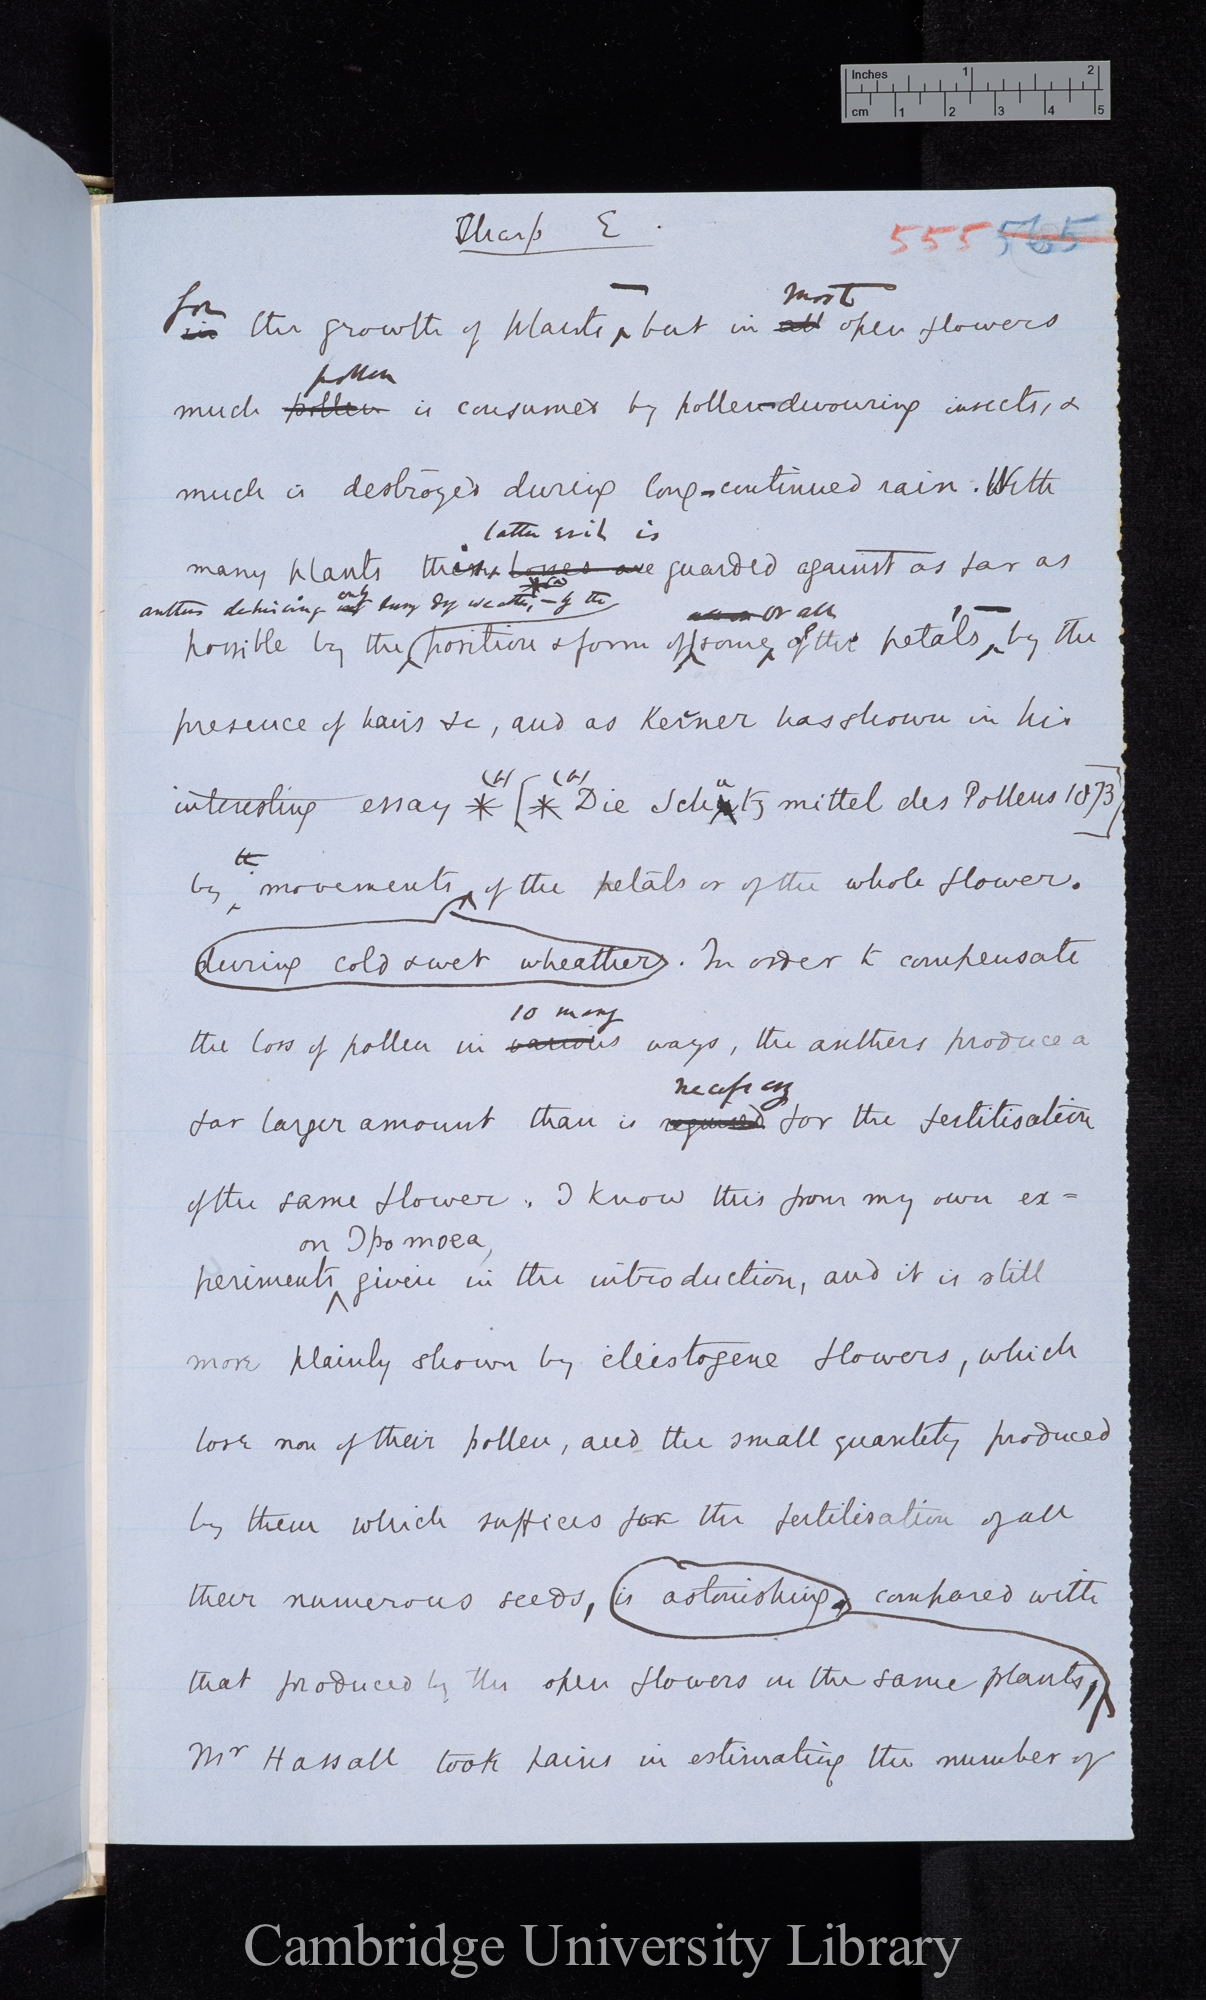 Inches 1 2
cm 1 2 3 4 5
Tharp E.
555 565
for most
in the growth of plants, – but in all open flowers
pollen
much pollen is consumed by pollen-devouring insects, &
much is destroyed during long-continued rain. With
latter evil is
many plants these losses are guarded against as far as
anthers dehiscing only during dry weather, – by the or all
possible by the position & form of some of the petals, – by the
presence of hairs &c, and as Kerner has shown in his
(a) (a) u
interesting essay * [* Die Schutz mittel des Pollens 1873]
the
by movements of the petals or of the whole flower.
during cold & wet wheather. In order to compensate
so many
the loss of pollen in various ways, the anthers produce a
necessary
far larger amount than is required for the fertilisation
of the same flower. I know this from my own ex=
on Ipomoea,
periments given in the introduction, and it is still
more plainly shown by cleistogene flowers, which
lose non of their pollen, and the small quantity produced
by them which suffices for the fertilisation of all
their numerous seeds, is astonishing, compared with
that produced by the open flowers in the same plants,
Mr Hassall took pains in estimating the number of
Cambridge University Library